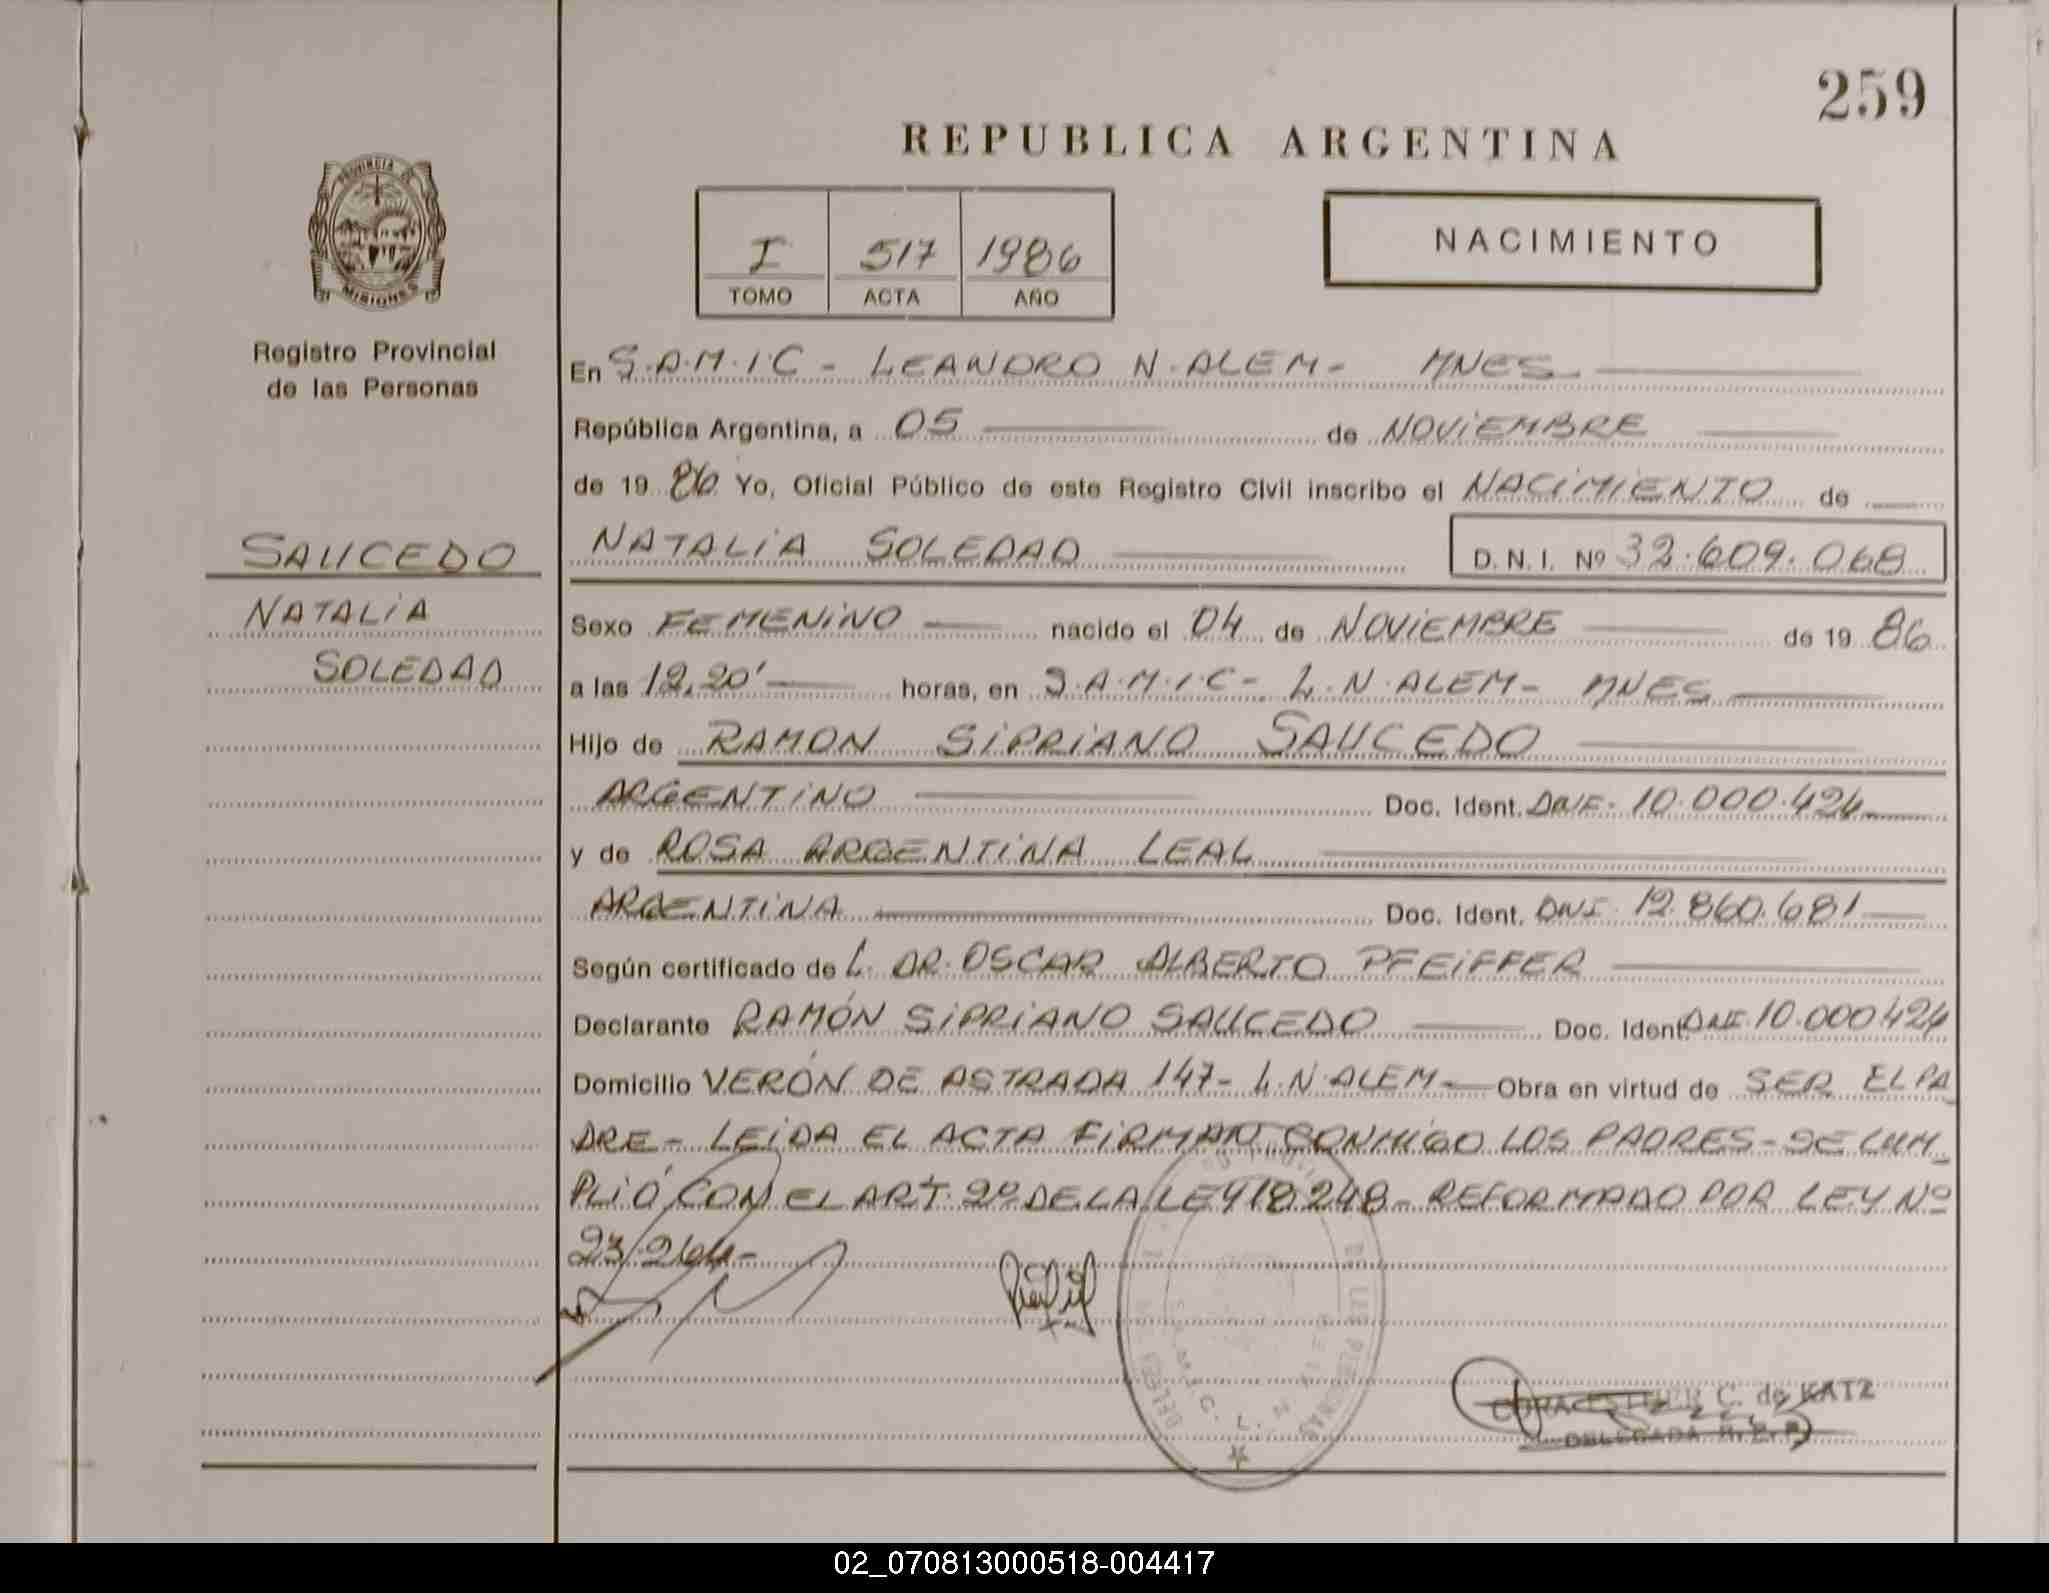 259
REPUBLICA ARGENTINA
PROVINCIA DE
MISIONES
Registro Provincial
de las Personas
I 517 1986
TOMO ACTA AÑO
NACIMIENTO
En S.A.M.I.C - LEANDRO N. ALEM - MNES
República Argentina, a 05 de NOVIEMBRE
de 19 86 Yo, Oficial Público de este Registro Civil inscribo el NACIMIENTO de
SAUCEDO
NATALIA
SOLEDAD
NATALIA SOLEDAD D. N. I. Nº 32.609.068
Sexo FEMENINO nacido el 04 de NOVIEMBRE de 19 86
a las 12,20' horas, en S.A.M.I.C - L.N. ALEM - MNES
Hijo de RAMON SIPRIANO SAUCEDO
ARGENTINO Doc. Ident. DNI. 10.000.424
y de ROSA ARGENTINA LEAL
ARGENTINA Doc. Ident. DNI 12.860.681
Según certificado de L. DR. OSCAR ALBERTO PFEIFFER
Declarante RAMÓN SIPRIANO SAUCEDO Doc. Ident. DNI 10.000424
Domicilio VERÓN DE ASTRADA 147 - L.N. ALEM - Obra en virtud de SER EL PA
DRE - LEIDA EL ACTA FIRMAN CONMIGO LOS PADRES - SE CUM_
PLIÓ CON EL ART. 2º DE LA LEY 18.248 - REFORMADO POR LEY Nº
23.264 -
DE LAS PERSONAS
S.A.M.I.C. L. N.
C. de KATZ
DELEGADA R. P. P.
02_070813000518-004417